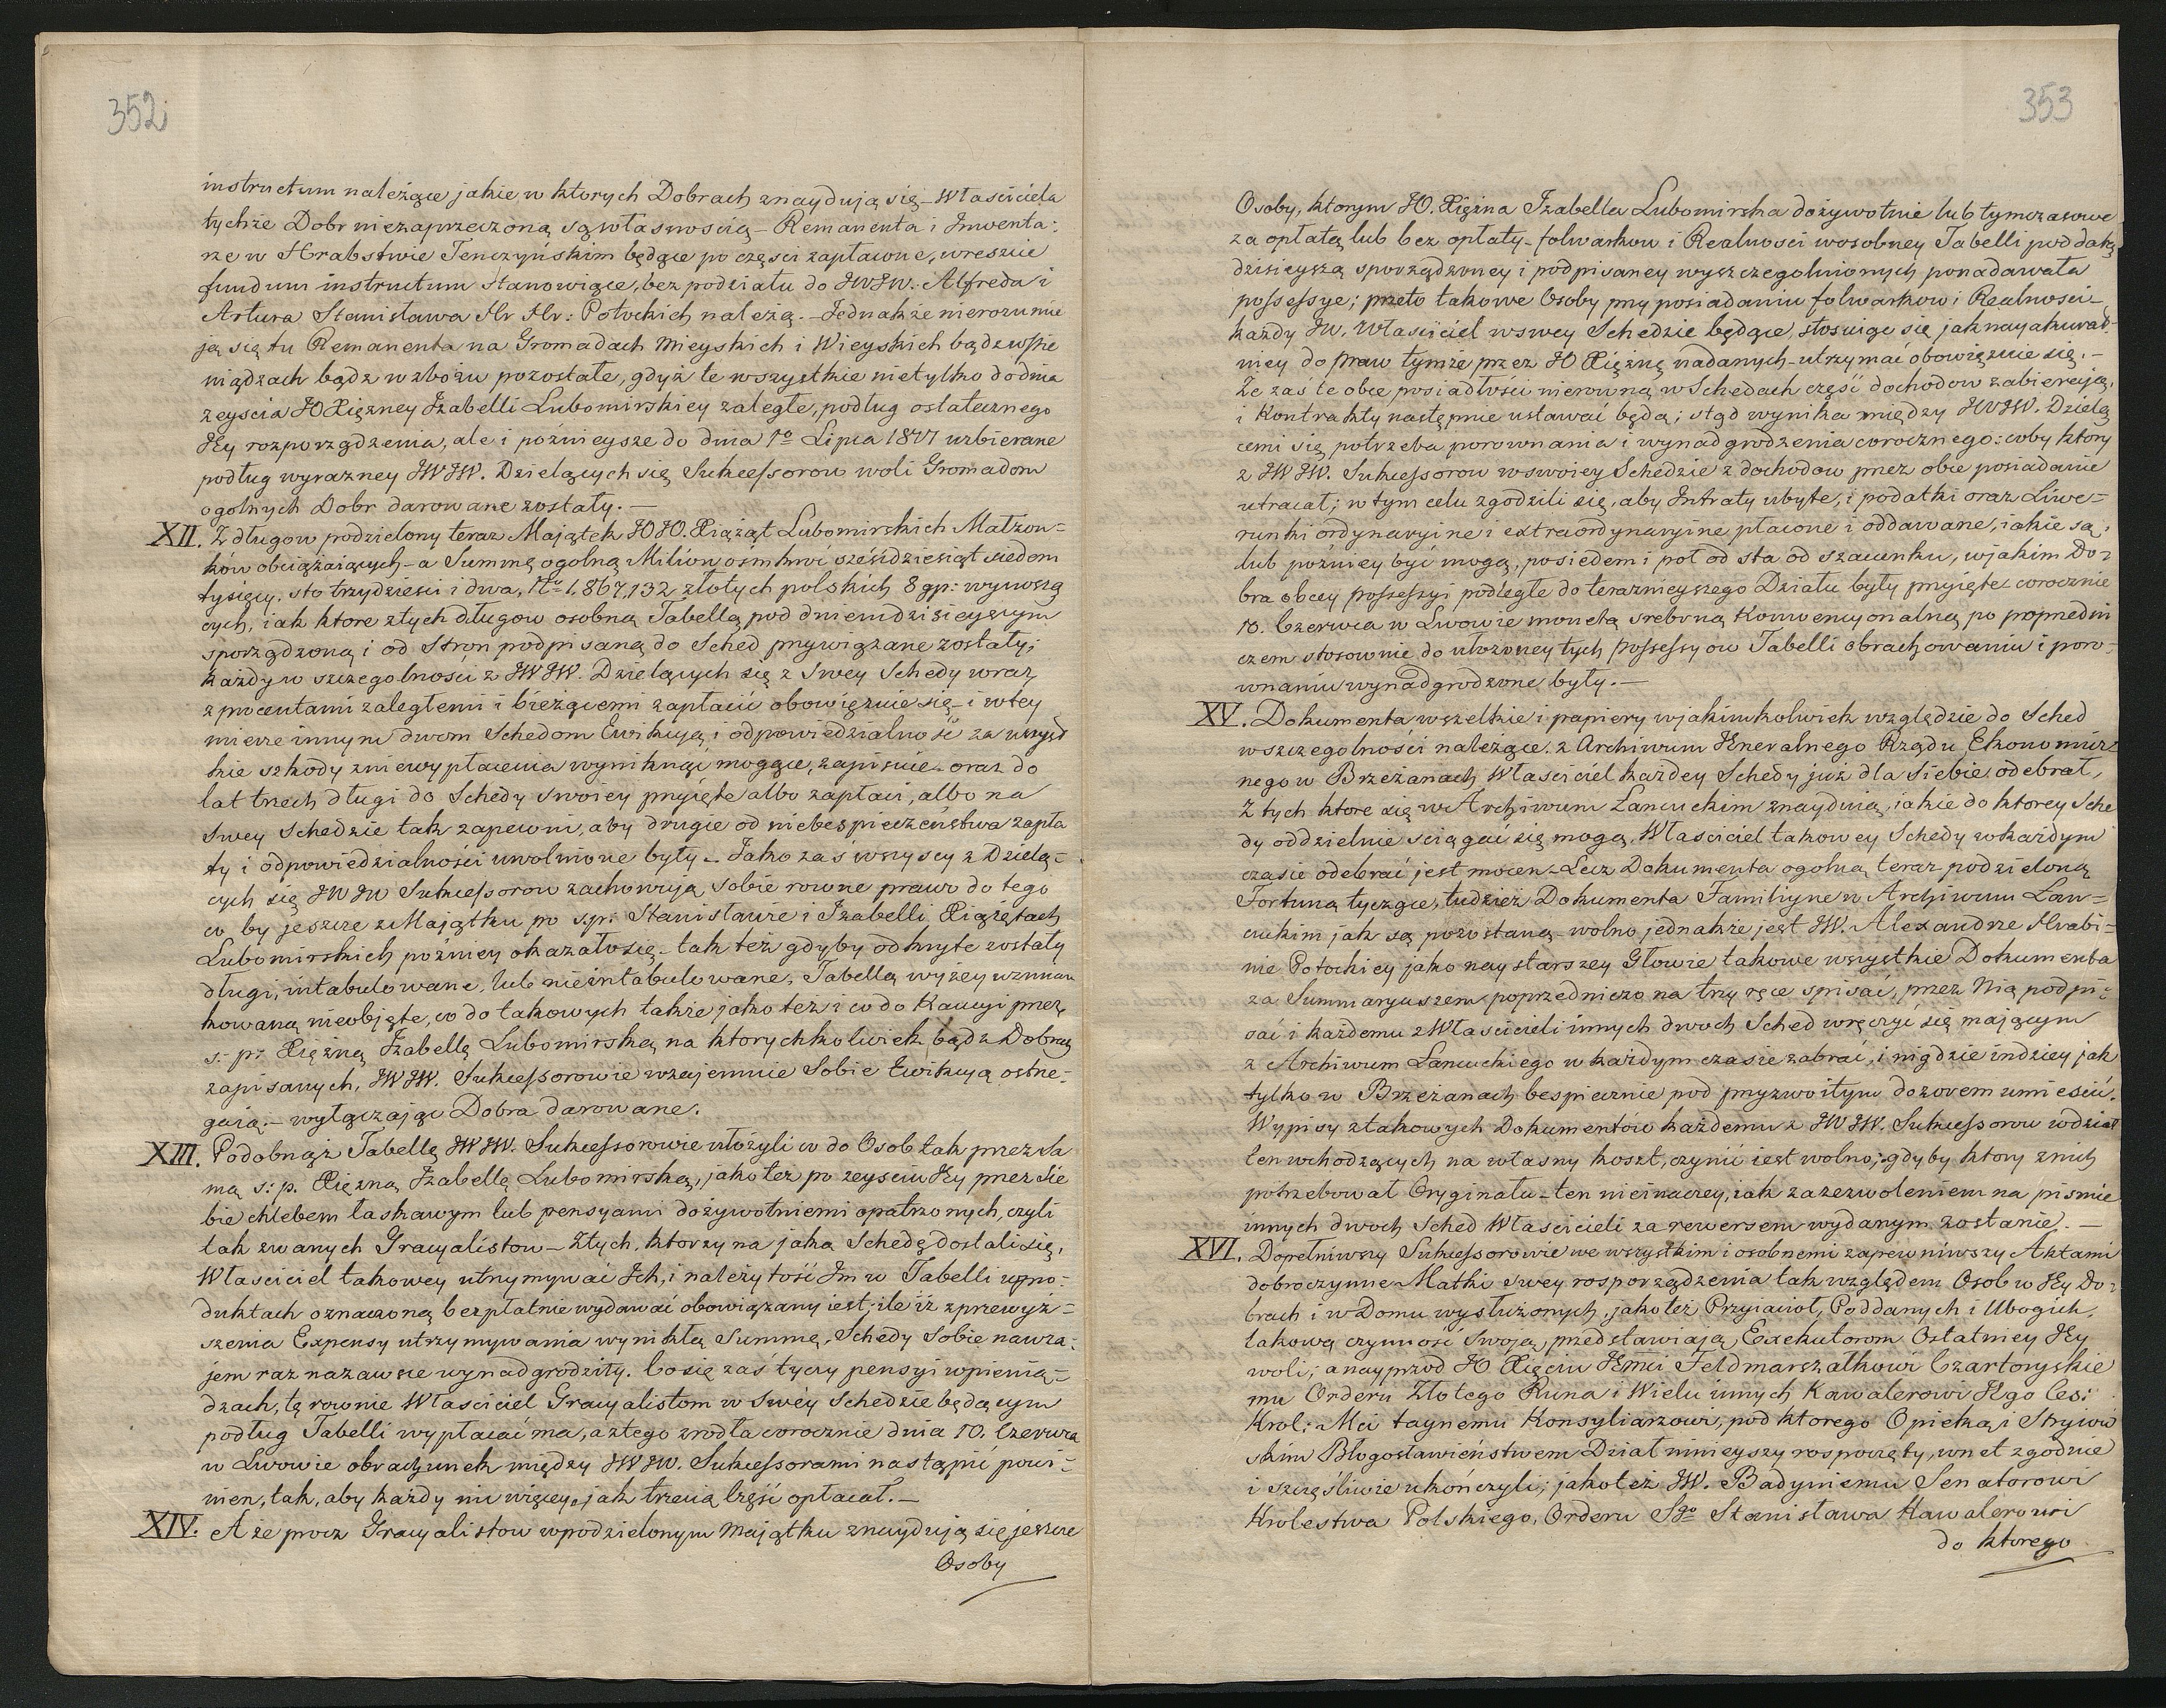 352
instructum należące jakie w ktorych Dobrach znaydują się – Własciciela
tychże Dobr niezaprzeczoną są własnością – Remanenta i Inwenta:
rze w Hrabstwie Tenczyńskim będące po częsci zapłacone, wreszcie
fundum instructum stanowiące, bez podziału do JWJW. Alfreda i
Artura Stanisława Hr Hr: Potockich należą. – Jednakże nierozumie
ją się tu Remanenta na Gromadach Mieyskich i Wieyskich bądz w Pie
niądzach bądz w zbożu pozostałe, gdyż te wszystkie nietylko do dnia
zeyscia JO Xiężney Izabelli Lubomirskiey zaległe, podług ostatecznego
Jey rozporządzenia, ale i póznieysze do dnia 1o Lipca 1817 uzbierane
podług wyrazney JWJW. Dzielących się Sukcessorow woli Gromadom
ogolnych Dobr darowane zostały. –
XII. Z długow podzielony teraz Majątek JOJO. Xiążąt Lubomirskich Małżon=
ków obciążaiących – a Summę ogolną Milion ośmkroć sześćdziesiąt siedem
tysięcy, sto trzydziesci i dwa, No 1,867,132 złotych polskich 8 gp: wynoszą
cych, iak ktore z tych długow osobną Tabellą pod dniem dzisieyszym
sporządzoną i od Stron podpisaną do Sched przywiązane zostały;
każdy w szczegolności z JWJW. Dzielących się z swey Schedy wraz
z procentami zaległemi i bieżącemi zapłacić obowięzuie się – i w tey
mierze innym dwom Schedom Ewikcyą i odpowiedzialność za wszyst
kie szkody z niewypłacenia wyniknąć mogące, zapisuie – oraz do
lat trzech długi do Schedy swoiey przyięte albo zapłaci, albo na
swey Schedzie tak zapewni, aby drugie od niebespieczeństwa zapła
ty i odpowiedzialności uwolnione były – Jako zaś wszyscy z Dzielą=
cych się JWJW Sukcessorow zachowują sobie rowne prawo do tego
co by jeszcze z Majątku po s.p. Stanisławie i Izabelli Xiążętach
Lubomirskich pózniey okazało się – tak też gdyby odkryte zostały
długi, intabulowane, lub nieintabulowane, Tabellą wyżey wzmian
kowaną nieobjęte, co do takowych także jako też i co do Kaucyi przez
s: p: Xiężnę Izabellę Lubomirską na ktorychkolwiek bądz Dobrach
zapisanych, JWJW. Sukcessorowie wzajemnie sobie Ewikcyą ostrze:
gaią – wyłączając Dobra darowane.
XIII. Podobnąż Tabellę JWJW. Sukcessorowie ułożyli co do Osob tak przez sa
mą s: p. Xiężnę Izabellę Lubomirską, jako też po zeysciu Jey przez sie
bie chlebem łaskawym lub pensyami dożywotniemi opatrzonych, czyli
tak zwanych Gracyalistow – Z tych, ktorzy na jaką Schedę dostali się,
Własciciel takowey utrzymywać Ich, i należytość Im w Tabelli w pro=
duktach oznaczoną bezpłatnie wydawać obowiązany iest; ile iż z przewyż=
szenia Expensy utrzymywania wynikłą Summę, Schedy sobie nawza:
jem raz na zawsze wynadgrodziły. Co się zaś tyczy pensyi w pienią=
dzach, tę rownie Własciciel Gracyalistom w swéy Schedzie będącym
podług Tabelli wypłacać ma, a z tego zrodła corocznie dnia 10. Czerwca
w Lwowie obrachunek między JWJW. Sukcessorami nastąpić powi=
nien, tak, aby każdy nic więcey, jak trzecią Część opłacał. –
XIV. A że procz Gracyalistow w podzielonym Majątku znaydują się jeszcze
Osoby
353
Osoby, ktorym JO. Xiężna Izabella Lubomirska dożywotnie lub tymczasowe
za opłatą lub bez opłaty – folwarkow i Realnosci w osobney Tabelli pod datą
dzisieyszą sporządzoney i podpisaney wyszczegolnionych ponadawała
possessye; przeto takowe Osoby przy posiadaniu folwarkow i Realnosci –
każdy JW. Własciciel w swey Schedzie będące, stosuiąc się jak nayakurat=
niey do praw tymże przez JO Xiężnę nadanych – utrzymać obowięzuie się. –
Że zaś te obce posiadłości nierowną w Schedach część dochodow zabieraią,
i Kontrakty następnie ustawać będą; ztąd wynika między JWJW. Dzielą
cemi się potrzeba porownania i wynadgrodzenia corocznego: coby ktory
z JWJW. Sukcessorow w swoiey Schedzie z dochodow przez obce posiadanie
utracał; w tym celu zgodzili się, aby Intraty ubyte, i podatki oraz Liwe=
runki ordynaryine i extraordynaryine płacone i oddawane, iakie są,
lub pózniey być mogą, po siedem i poł od sta od szacunku, w jakim Do=
bra obcey possessyi podległe do teraznieyszego Działu były przyięte – corocznie
10. Czerwca w Lwowie monetą srebrną Konwencyonalną po poprzedni
czem stosownie do ułożoney tych possessyow Tabelli obrachowaniu i poro=
wnaniu wynadgrodzone były. –
XV. Dokumenta wszelkie i papiery w jakimkolwiek względzie do Sched
w szczegolności należące, z Archiwum Jeneralnego Rządu Ekonomicz
nego w Brzeżanach Własciciel każdey Schedy już dla siebie odebrał,
z tych ktore się w Archiwum Łancuckim znayduią, iakie do ktorey Sche
dy oddzielnie sciągać się mogą, Własciciel takowey Schedy w każdym
czasie odebrać jest mocen – Lecz Dokumenta ogolną teraz podzieloną
Fortunę tyczące, tudzież Dokumenta Familiyne w Archiwum Łan=
cuckim jak są pozostaną – wolno jednakże jest JW. Alexandrze Hrabi=
nie Potockiey jako naystarszey Głowie takowe wszystkie Dokumenta
za Summaryuszem poprzedniczo na trzy ręce spisać, przez Nię podpi=
sać i każdemu z Własicieli innych dwoch Sched wręczyć się mającym
z Archiwum Łancuckiego w każdym czasie zabrać, i nigdzie indziey jak
tylko w Brzeżanach bespiecznie pod przyzwoitym dozorem umiescić.
Wypisy z takowych Dokumentów każdemu z JWJW. Sukcessorow w dział
ten wchodzących na własny koszt, czynić iest wolno; gdyby ktory z nich
potrzebował Oryginału – ten nieinaczey, iak za zezwoleniem na pismie
innych dwoch Sched Własicieli za rewersem wydanym zostanie. –
XVI. Dopełniwszy Sukcessorowie we wszystkim i osobnemi zapewniwszy Aktami
dobroczynne Matki swey rosporządzenia tak względem Osob w Jey Do=
brach i w Domu wysłużonych, jako też Przyiacioł, Poddanych i Ubogich,
takową czynność swoją, przedstawiają Exekutorom Ostatniey Jey
woli; a nayprzod JO Xięciu Jmci Feldmarszałkowi Czartoryskie
mu Orderu Złotego Runa i Wielu innych Kawalerowi Jego Ces:
Krol: Mci taynemu Konsyliarzowi, pod ktorego Opieką i Stryiow
skim Błogosławieństwem Dział ninieyszy rospoczęty, wnet zgodnie
i szczęśliwie ukończyli; jako też JW. Badyniemu Senatorowi
Krolestwa Polskiego, Orderu Sgo Stanisława Kawalerowi
do ktorego